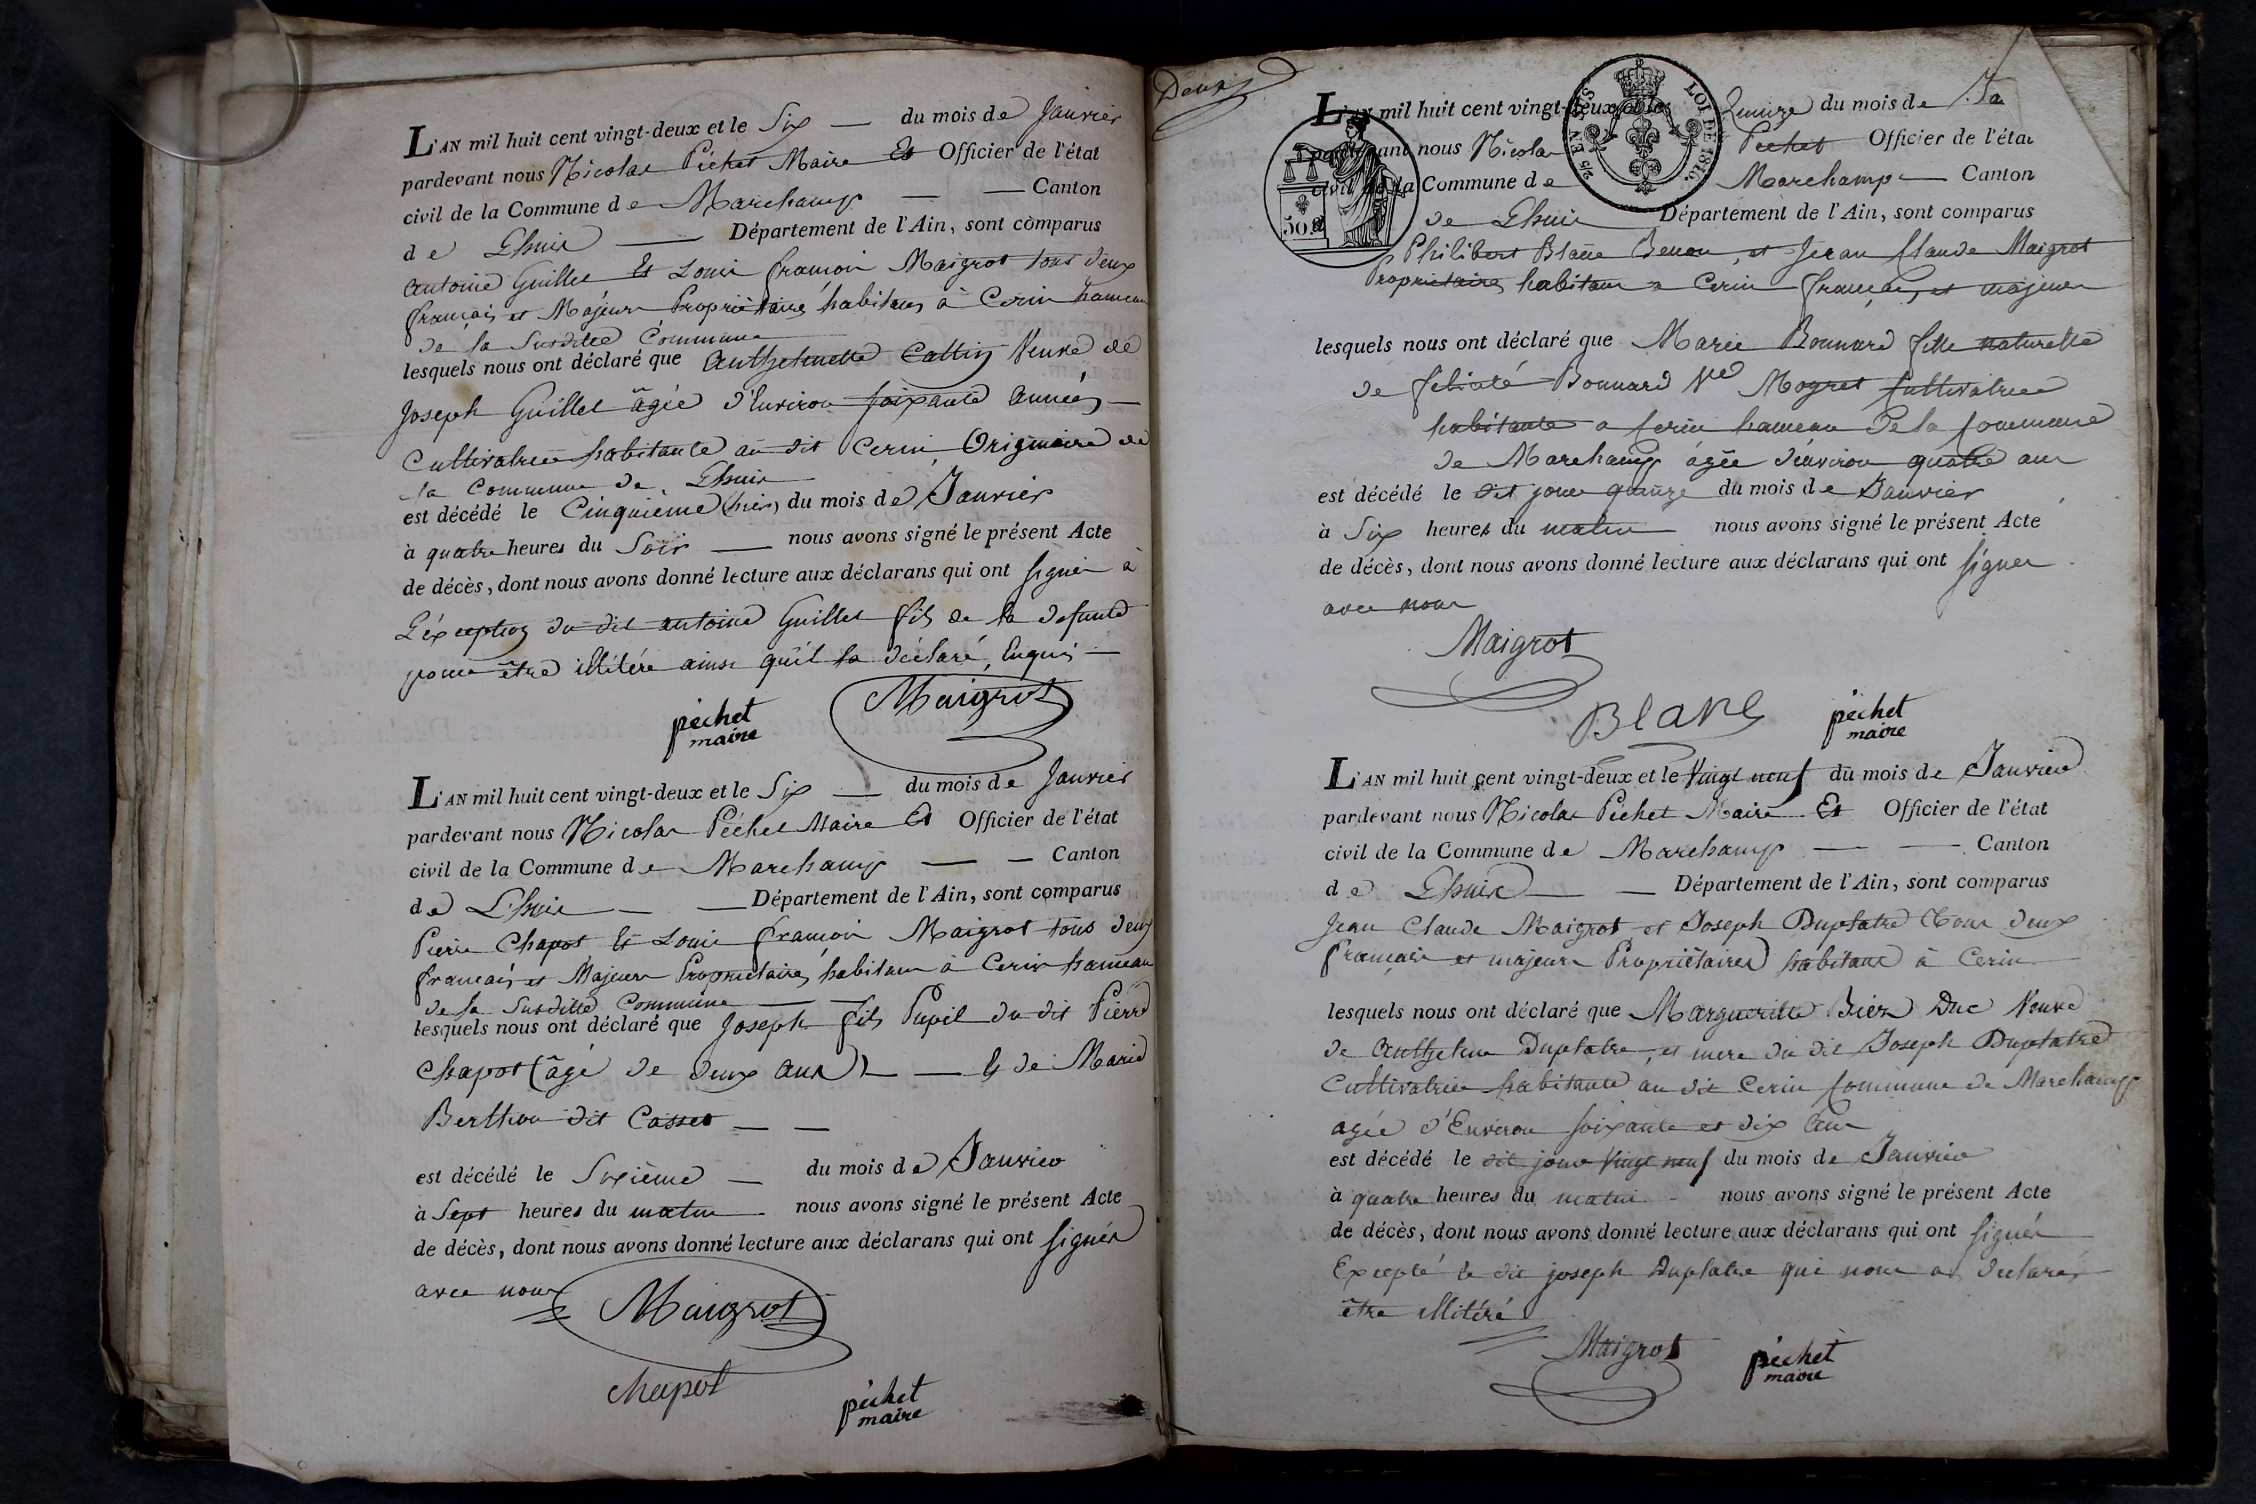 L'AN mil huit cent vingt-deux et le Six — du mois de Janvier
pardevant nous Nicolas Péchet Maire Et Officier de l'état
civil de la Commune de Marchamp — — Canton
de Lhuis — Département de l'Ain, sont comparus
antoine Guillet Et Louis françois Maigrot tous deux
français et Majeurs Propriétaires habitans à Cerin hameau
de la Susditte Commune
lesquels nous ont déclaré que Anthelmette Cattin Veuve de
Joseph Guillet âgée d'Environ soixante années —
Cultivatrice habitante au dit Cerin, Originaire de
la Commune de Lhuis
est décédé le Cinquième (hier) du mois de Janvier
à quatre heures du Soir — nous avons signé le présent Acte
de décès, dont nous avons donné lecture aux déclarans qui ont signés à
L'éxception du dit antoine Guillet fils de la defunte
pour être illitéré ainsi qu'il la déclaré, Enquis —
Maigrot
péchet
maire
L'AN mil huit cent vingt-deux et le Six — du mois de Janvier
pardevant nous Nicolas Péchet Maire Et Officier de l'état
civil de la Commune de Marchamp — — Canton
de Lhuis — — Département de l'Ain, sont comparus
Pierre Chapot Et Louis françois Maigrot tous deux
français et Majeurs Propriétaires habitans à Cerin hameau
de la Susditte Commune — —
lesquels nous ont déclaré que Joseph fils Pupil du dit Pierre
Chapot (âgé de deux ans) — — & de Marie
Berthon dit Casset — —
est décédé le Sixième — du mois de Janvier
à Sept heures du matin — nous avons signé le présent Acte
de décès, dont nous avons donné lecture aux déclarans qui ont signés
avec nous
Maigrot
Chapot
péchet
maire
Deux
25 EN SUS
LOI DE 1816.
50 c
L'AN mil huit cent vingt-deux et le Quinze du mois de Ja
pardevant nous Nicolas Péchet Officier de l'état
civil de la Commune de Marchamp — Canton
de Lhuis Département de l'Ain, sont comparus
Philibert Blanc Benon, et Jean Claude Maigrot
Propriétaires habitans a Cerin français, et majeurs
lesquels nous ont déclaré que Marie Bonnard fille naturelle
de félicité Bonnard Vve Mogret Cultivatrice
habitante a Cerin hameau de la Commune
de Marchamp âgée d'environ quatre ans
est décédé le dit jour quinze du mois de Janvier
à Six heures du matin — nous avons signé le présent Acte
de décès, dont nous avons donné lecture aux déclarans qui ont signés
avec nous
Maigrot
BLANC
péchet
maire
L'AN mil huit cent vingt-deux et le Vingt neuf du mois de Janvier
pardevant nous Nicolas Péchet Maire Et Officier de l'état
civil de la Commune de Marchamp — — Canton
de Lhuis — — Département de l'Ain, sont comparus
Jean Claude Maigrot et Joseph Duplatre Tous deux
français et majeurs Propriétaires habitans à Cerin
lesquels nous ont déclaré que Margueritte Duc Veuve
de Anthelme Duplatre, et mere du dit Joseph Duplatre
Cultivatrice habitante au dit Cerin Commune de Marchamp
agée d'Environ soixante et dix Ans
est décédé le dit jour Vingt neuf du mois de Janvier
à quatre heures du matin — nous avons signé le présent Acte
de décès, dont nous avons donné lecture aux déclarans qui ont signés
Excepté le dit joseph Duplatre qui nous a déclaré
être illitéré
Maigrot
péchet
maire